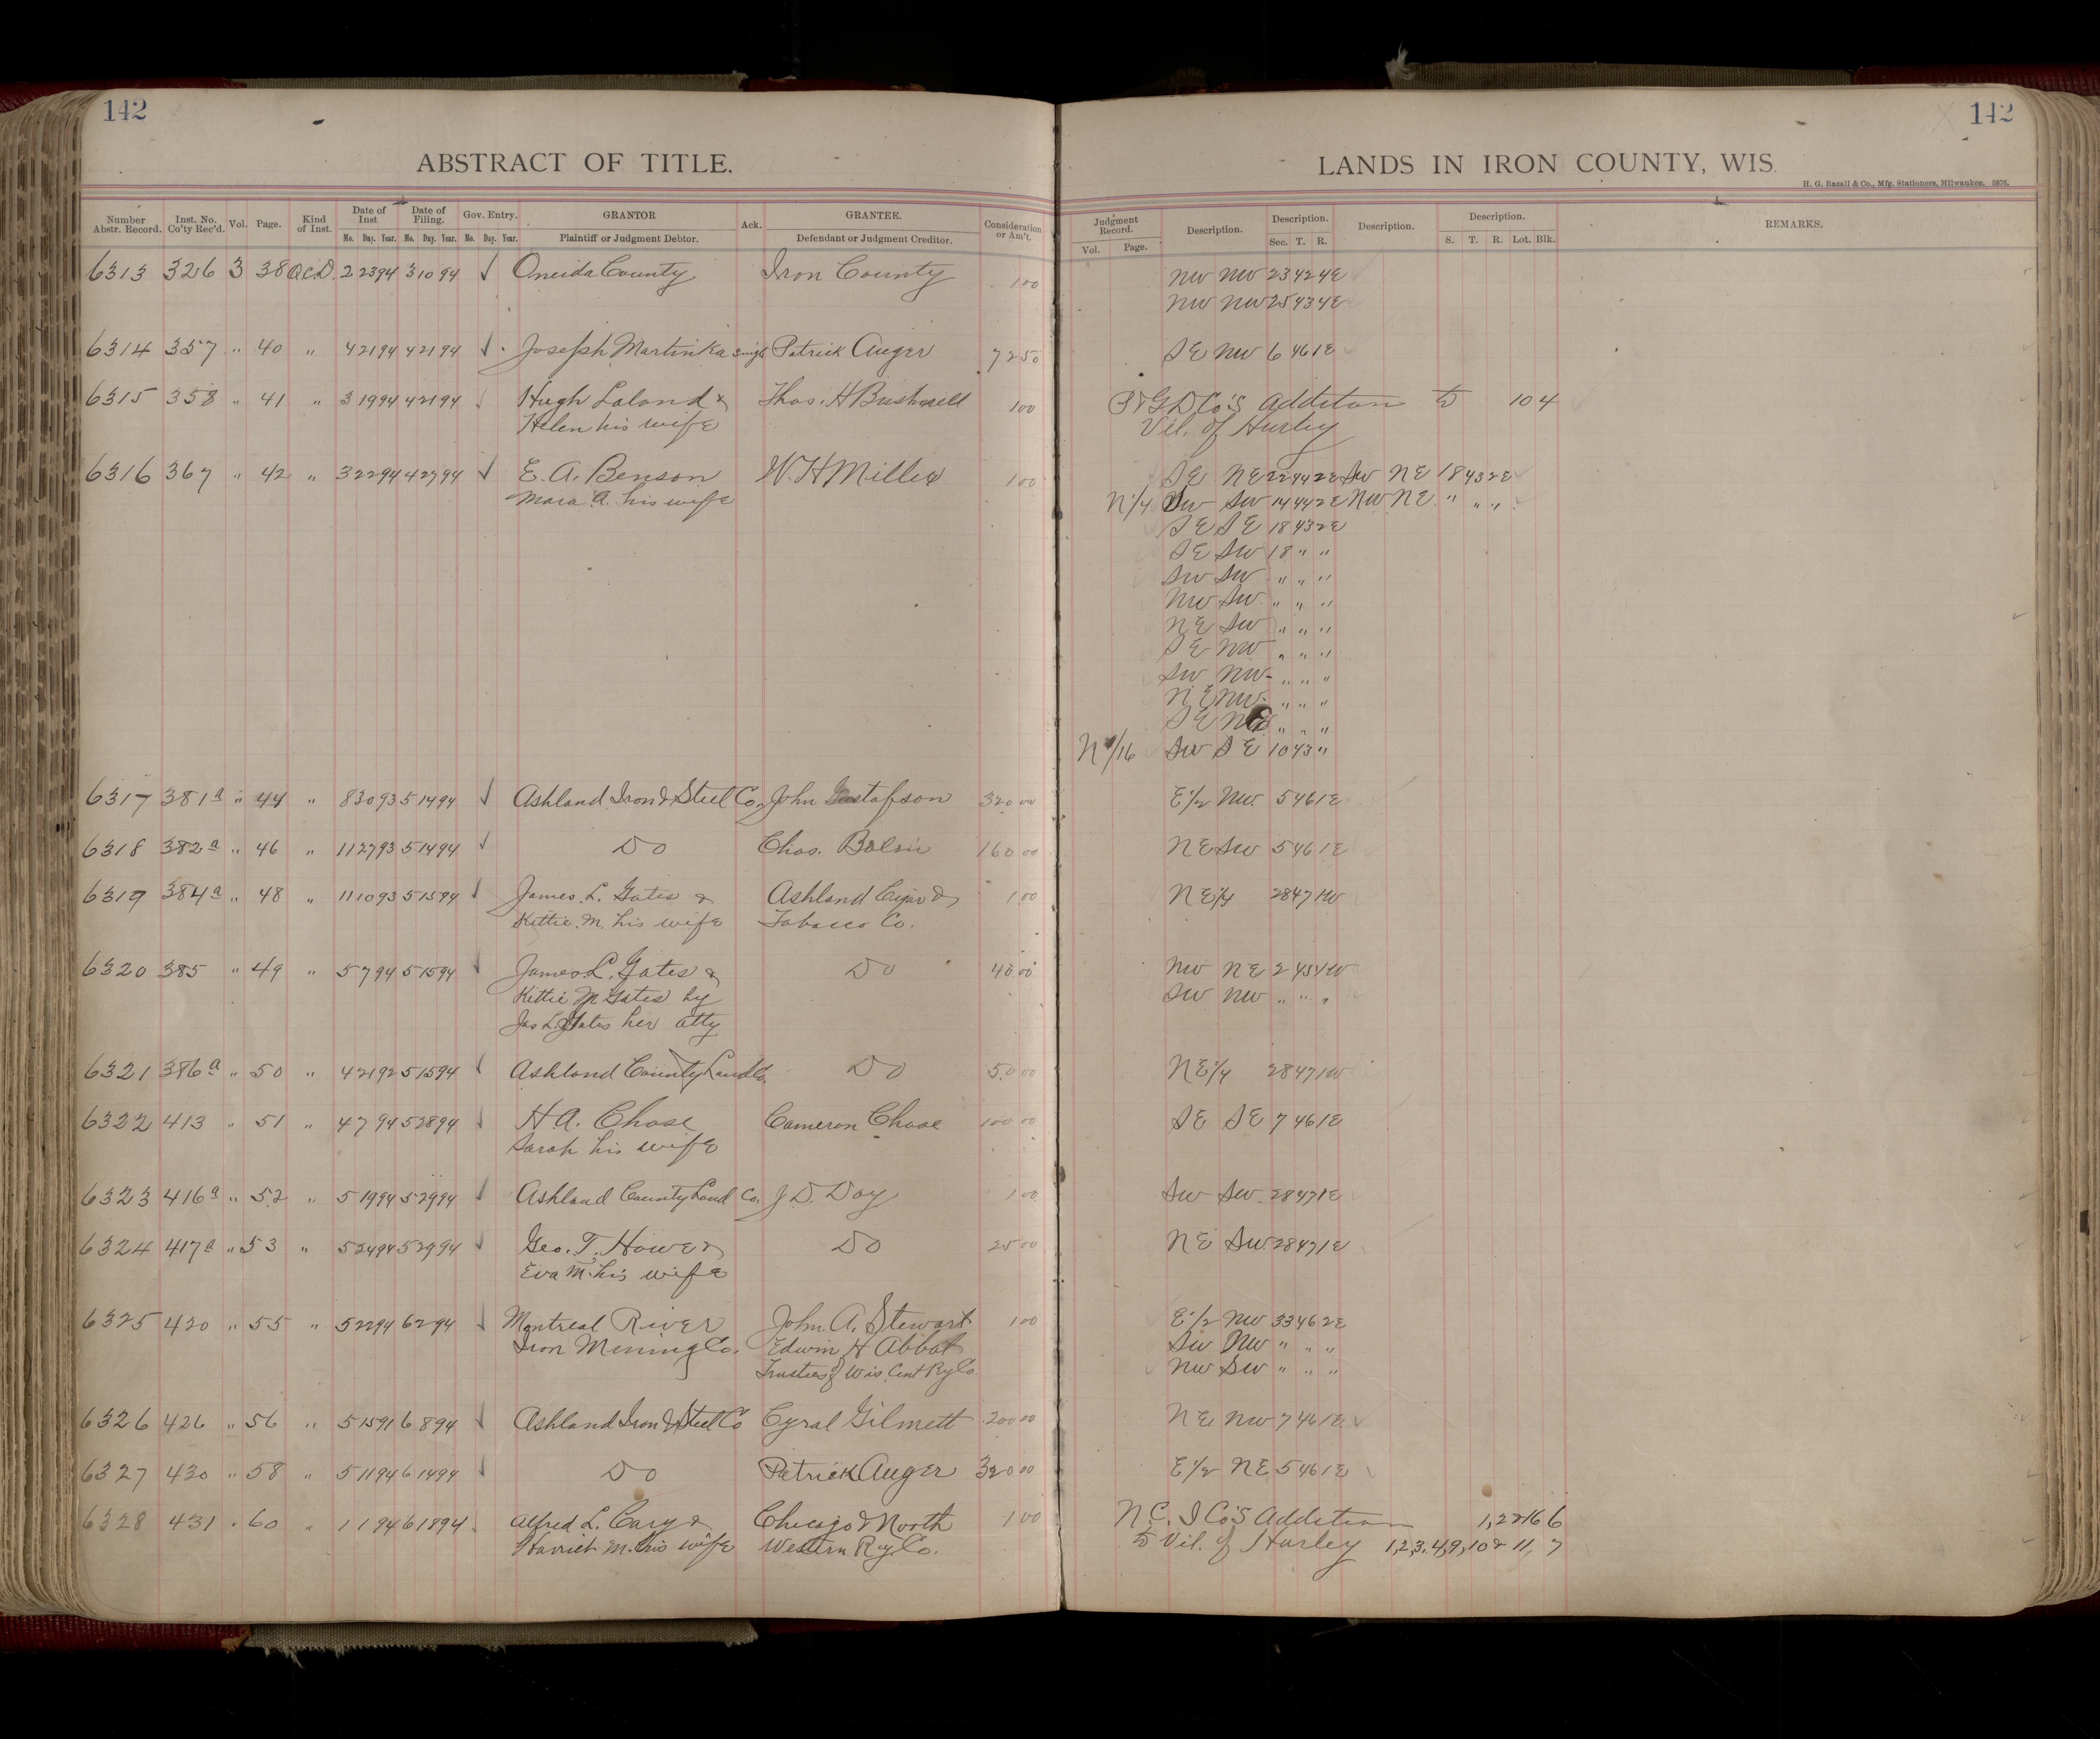 142
142
ABSTRACT OF TITLE.
LANDS IN IRON COUNTY, WIS.
H. G. Razall & Co., Mfg. Stationers, Milwaukee. 5976.
Number Abstr. Record. Inst. No. Co'ty Rec'd. Vol. Page. Kind of Inst. Date of Inst Mo. Day. Year. Date of Filing. Mo. Day. Year. Gov. Entry. Mo. Day. Year. GRANTOR Plaintiff or Judgment Debtor. Ack. GRANTEE. Defendant or Judgment Creditor. Consideration or Am't. Judgment Record. Vol. Page. Description. Description. Sec. T. R. Description. Description. S. T. R. Lot. Blk. REMARKS.
6313 326 3 38 QCD. 2 23 94 3 10 94 √ Oneida County Iron County 1 00 NW NW 23 42 4E
NW NW 25 43 4E
6314 357 " 40 " 4 21 94 4 21 94 √ Joseph Martinka single Patrick Auger 72 50 SE NW 6 46 1E
6315 358 " 41 " 3 19 94 4 21 94 √ Hugh Laland & Thos. H Bushnell 1 00 Co's Additon to 10 4
Helen his wife Vil. of Hurley
6316 367 " 42 " 3 22 94 4 27 94 √ E. A. Benson W. H Miller 1 00 SE NE 22 44 2E SW NE 18 43 2E
Mara A. his wife N 1/4 SW SW 14 44 2E NW NE " " "
SE SE 18 43 2E
SE SW 18 " "
SW SW " " "
NW SW " " "
NE SW " " "
SE NW " " "
SW NW " " "
NE NW " " "
SE NE " " "
N 1/16 SW SE 10 43 "
6317 381a " 44 " 8 30 93 5 14 94 √ Ashland Iron & Steel Co. John Gustafson 320 00 E 1/2 NW 5 46 1E
6318 382a " 46 " 11 27 93 5 14 94 √ Do Chas. 160 00 NE SW 5 46 1E
6319 384a " 48 " 11 10 93 5 15 94 √ James. L. Gates & Ashland Cigar & 1 00 NE 1/4 28 47 1W
Kittie. M. his wife Tobacco Co.
6320 385 " 49 " 5 7 94 5 15 94 √ James L. Gates & Do 40 00 NW NE 2 1W
Kittie M Gates by SW NW " " "
Jas L Gates her atty
6321 386a " 50 " 4 21 92 5 15 94 √ Ashland County Land Co. Do 50 00 NE 1/4 28 47 1W
6322 413 " 51 " 4 7 94 5 28 94 √ H A. Chase Cameron Chase 100 00 SE SE 7 46 1E
Sarah his wife
6323 416a " 52 " 5 19 94 5 29 94 √ Ashland County Land Co. J D. Day 1 00 SW SW 28 47 1E
6324 417a " 53 " 5 24 94 5 29 94 √ Geo. T. Howe & Do 25 00 NE SW 28 47 1E
Eva M. his wife
6325 420 " 55 " 5 22 94 6 2 94 √ Montreal River John A. Stewart 1 00 E 1/2 NW 33 46 2E
Iron Mining Co. Edwin H Abbot SW NW " " "
Trustees of Wis Cent Ry Co NW SW " " "
6326 426 " 56 " 5 15 91 6 8 94 √ Ashland Iron & Steel Co Cyral Gilmett 200 00 NE NW 7 46 1E
6327 430 " 58 " 5 11 94 6 14 94 √ Do Patrick Auger 320 00 E 1/2 NE 5 46 1E
6328 431 " 60 " 1 1 94 6 18 94 Alfred L. Cary & Chicago & North 1 00 N. C. I Co's Addition 1, 2 & 16 6
Harriet M. his wife Western Ry. Co. to Vil. of Hurley 1,2,3,4,9,10 & 11, 7